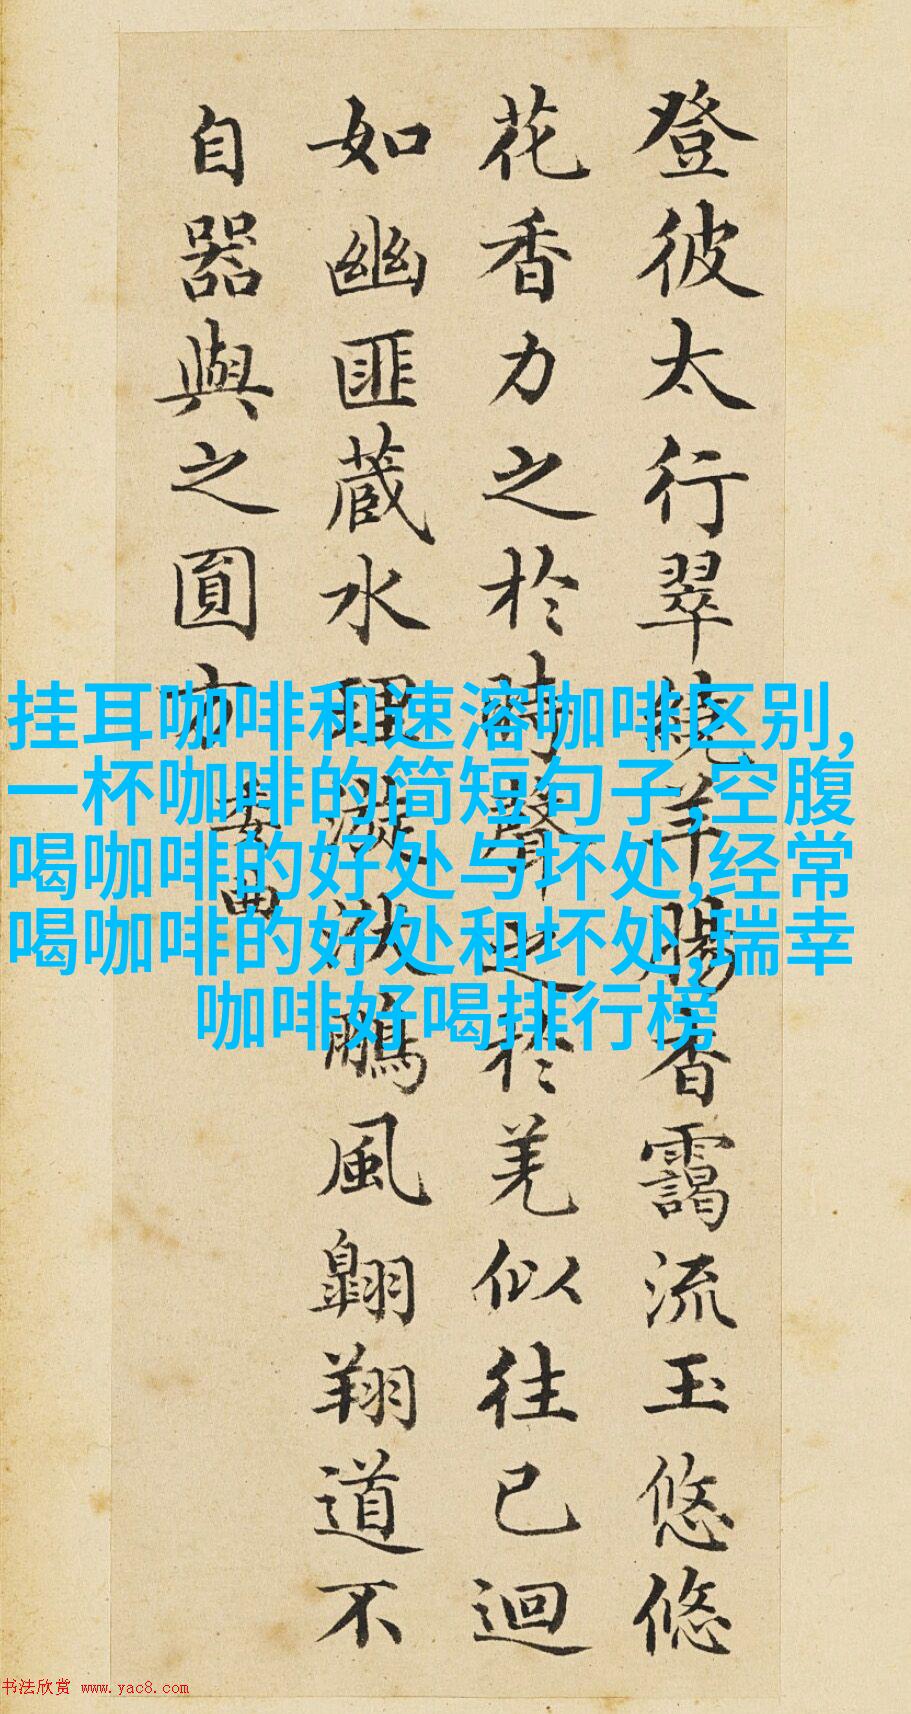 登彼太行翠繞羊腸杳靄流玉悠悠
花香力之於時聲之於羌似往已迴
如幽匪蔵水理漩洑鵬風翶翔道不
自器與之圓方
委曲
挂耳咖啡和速溶咖啡区别,
一杯咖啡的简短句子,空腹
喝咖啡的好处与坏处,经常
喝咖啡的好处和坏处,瑞幸
咖啡好喝排行榜
书法欣赏 www.yac8.com